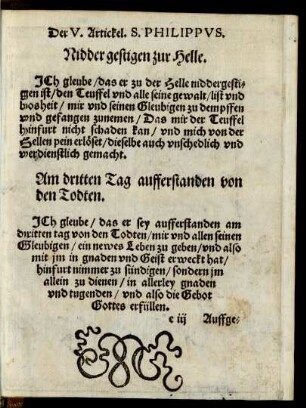 Der V. Artickel. S. PHILIPPVS.
Nidder gestigen zur Helle.
ICh gleube / das er zu der Helle niddergesti-
gen ist / den Teuffel vnd alle seine gewalt / list vnd
bosheit / mir vnd seinen Gleubigen zu dempffen
vnd gefangen zunemen / Das mir der Teuffel
hinfurt nicht schaden kan / vnd mich von der
Hellen pein erlöset / dieselbe auch vnschedlich vnd
verdienstlich gemacht.
Am dritten Tag aufferstanden von
den Todten.
ICh gleube / das er sey aufferstanden am
dritten tag von den Todten / mir vnd allen seinen
Gleubigen / ein newes Leben zu geben / vnd also
mit jm in gnaden vnd Geist erweckt hat /
hinfurt nimmer zu sündigen / sondern jm
allein zu dienen / in allerley gnaden
vnd tugenden / vnd also die Gebot
Gottes erfüllen.
e iij Auffge-